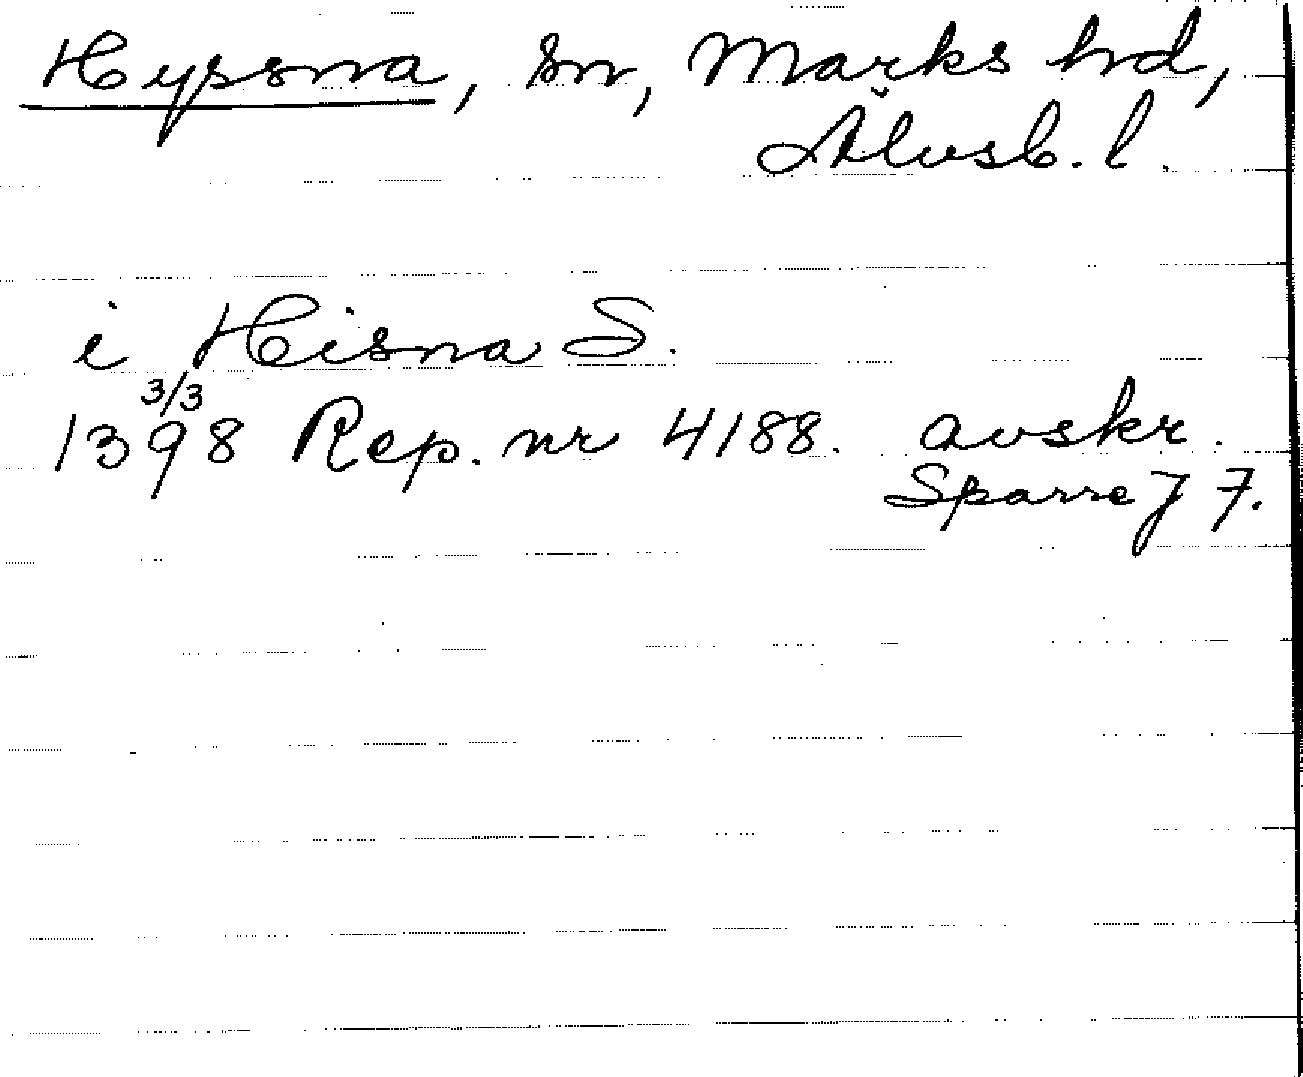 Hyssna, sn, Marks hd,
Älvsb. l.
i Hisna S.
3/3
1398 Rep. nr 4188. avskr.
Sparre J F.